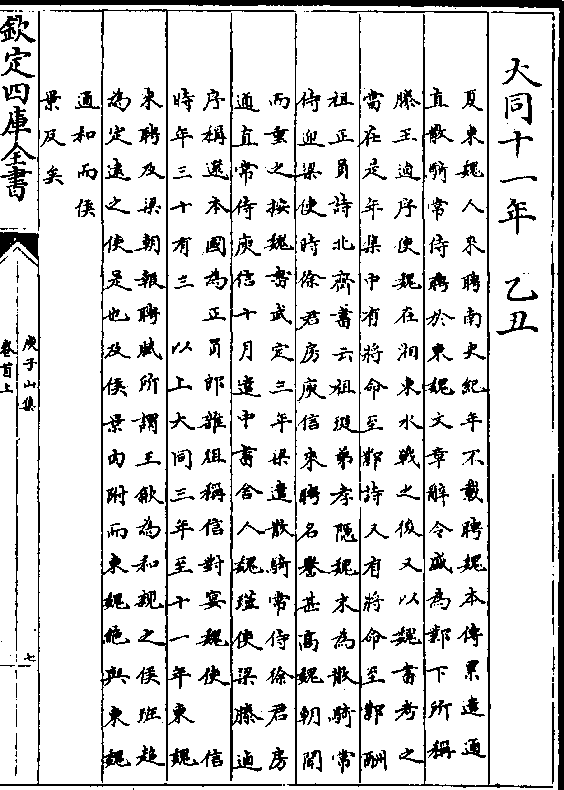 大同十一年 乙丑
夏東魏人來聘南史紀年不載聘魏本傳累遷通
直散騎常侍聘於東魏文章辭令盛為鄴下所稱
滕王逌序使魏在湘東水戰之後又以魏書考之
當在是年集中有將命至鄴詩又有將命至鄴酬
祖正員詩北齊書云祖珽弟孝隱魏末為散騎常
侍迎梁使時徐君房庾信來聘名譽甚高魏朝聞
而重之按魏書武定三年梁遣散騎常侍徐君房
通直常侍庾信十月遣中書舍人魏瑾使梁滕逌
序稱選本國為正員郎雜俎稱信對宴魏使 信
時年三十有三 以上大同三年至十一年東魏
來聘及梁朝報聘賦所謂王歙為和親之侯班超
為定遠之使是也及侯景內附而東魏絕與東魏
通和而侯
景反矣
欽定四庫全書
庾子山集
卷首上
七